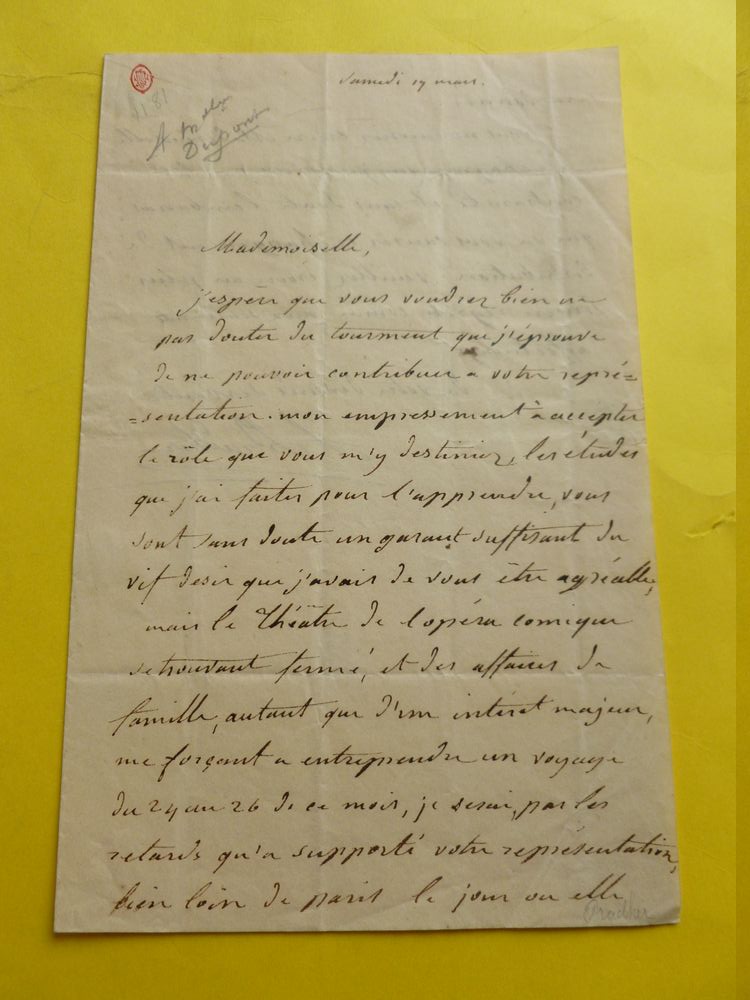 Samedi 19 mars.
A Melle
Dupont
Mademoiselle,
j'espère que vous voudrez bien ne
pas douter du tourment que j'éprouve
de ne pouvoir contribuer a votre repré=
=sentation. mon empressement à accepter
le rôle que vous m'y destiniez, les études
que j'ai faites pour l'apprendre, vous
sont sans doute un garant suffisant du
vif desir que j'avais de vous être agréable,
mais le Théâtre de l'opéra comique
se trouvant fermé, et des affaires de
famille, autant que d'un intérêt majeur,
me forçant a entreprendre un voyage
du 24 au 26 de ce mois, je serai, par les
retards qu'a supporté votre représentation,
bien loin de paris le jour ou elle